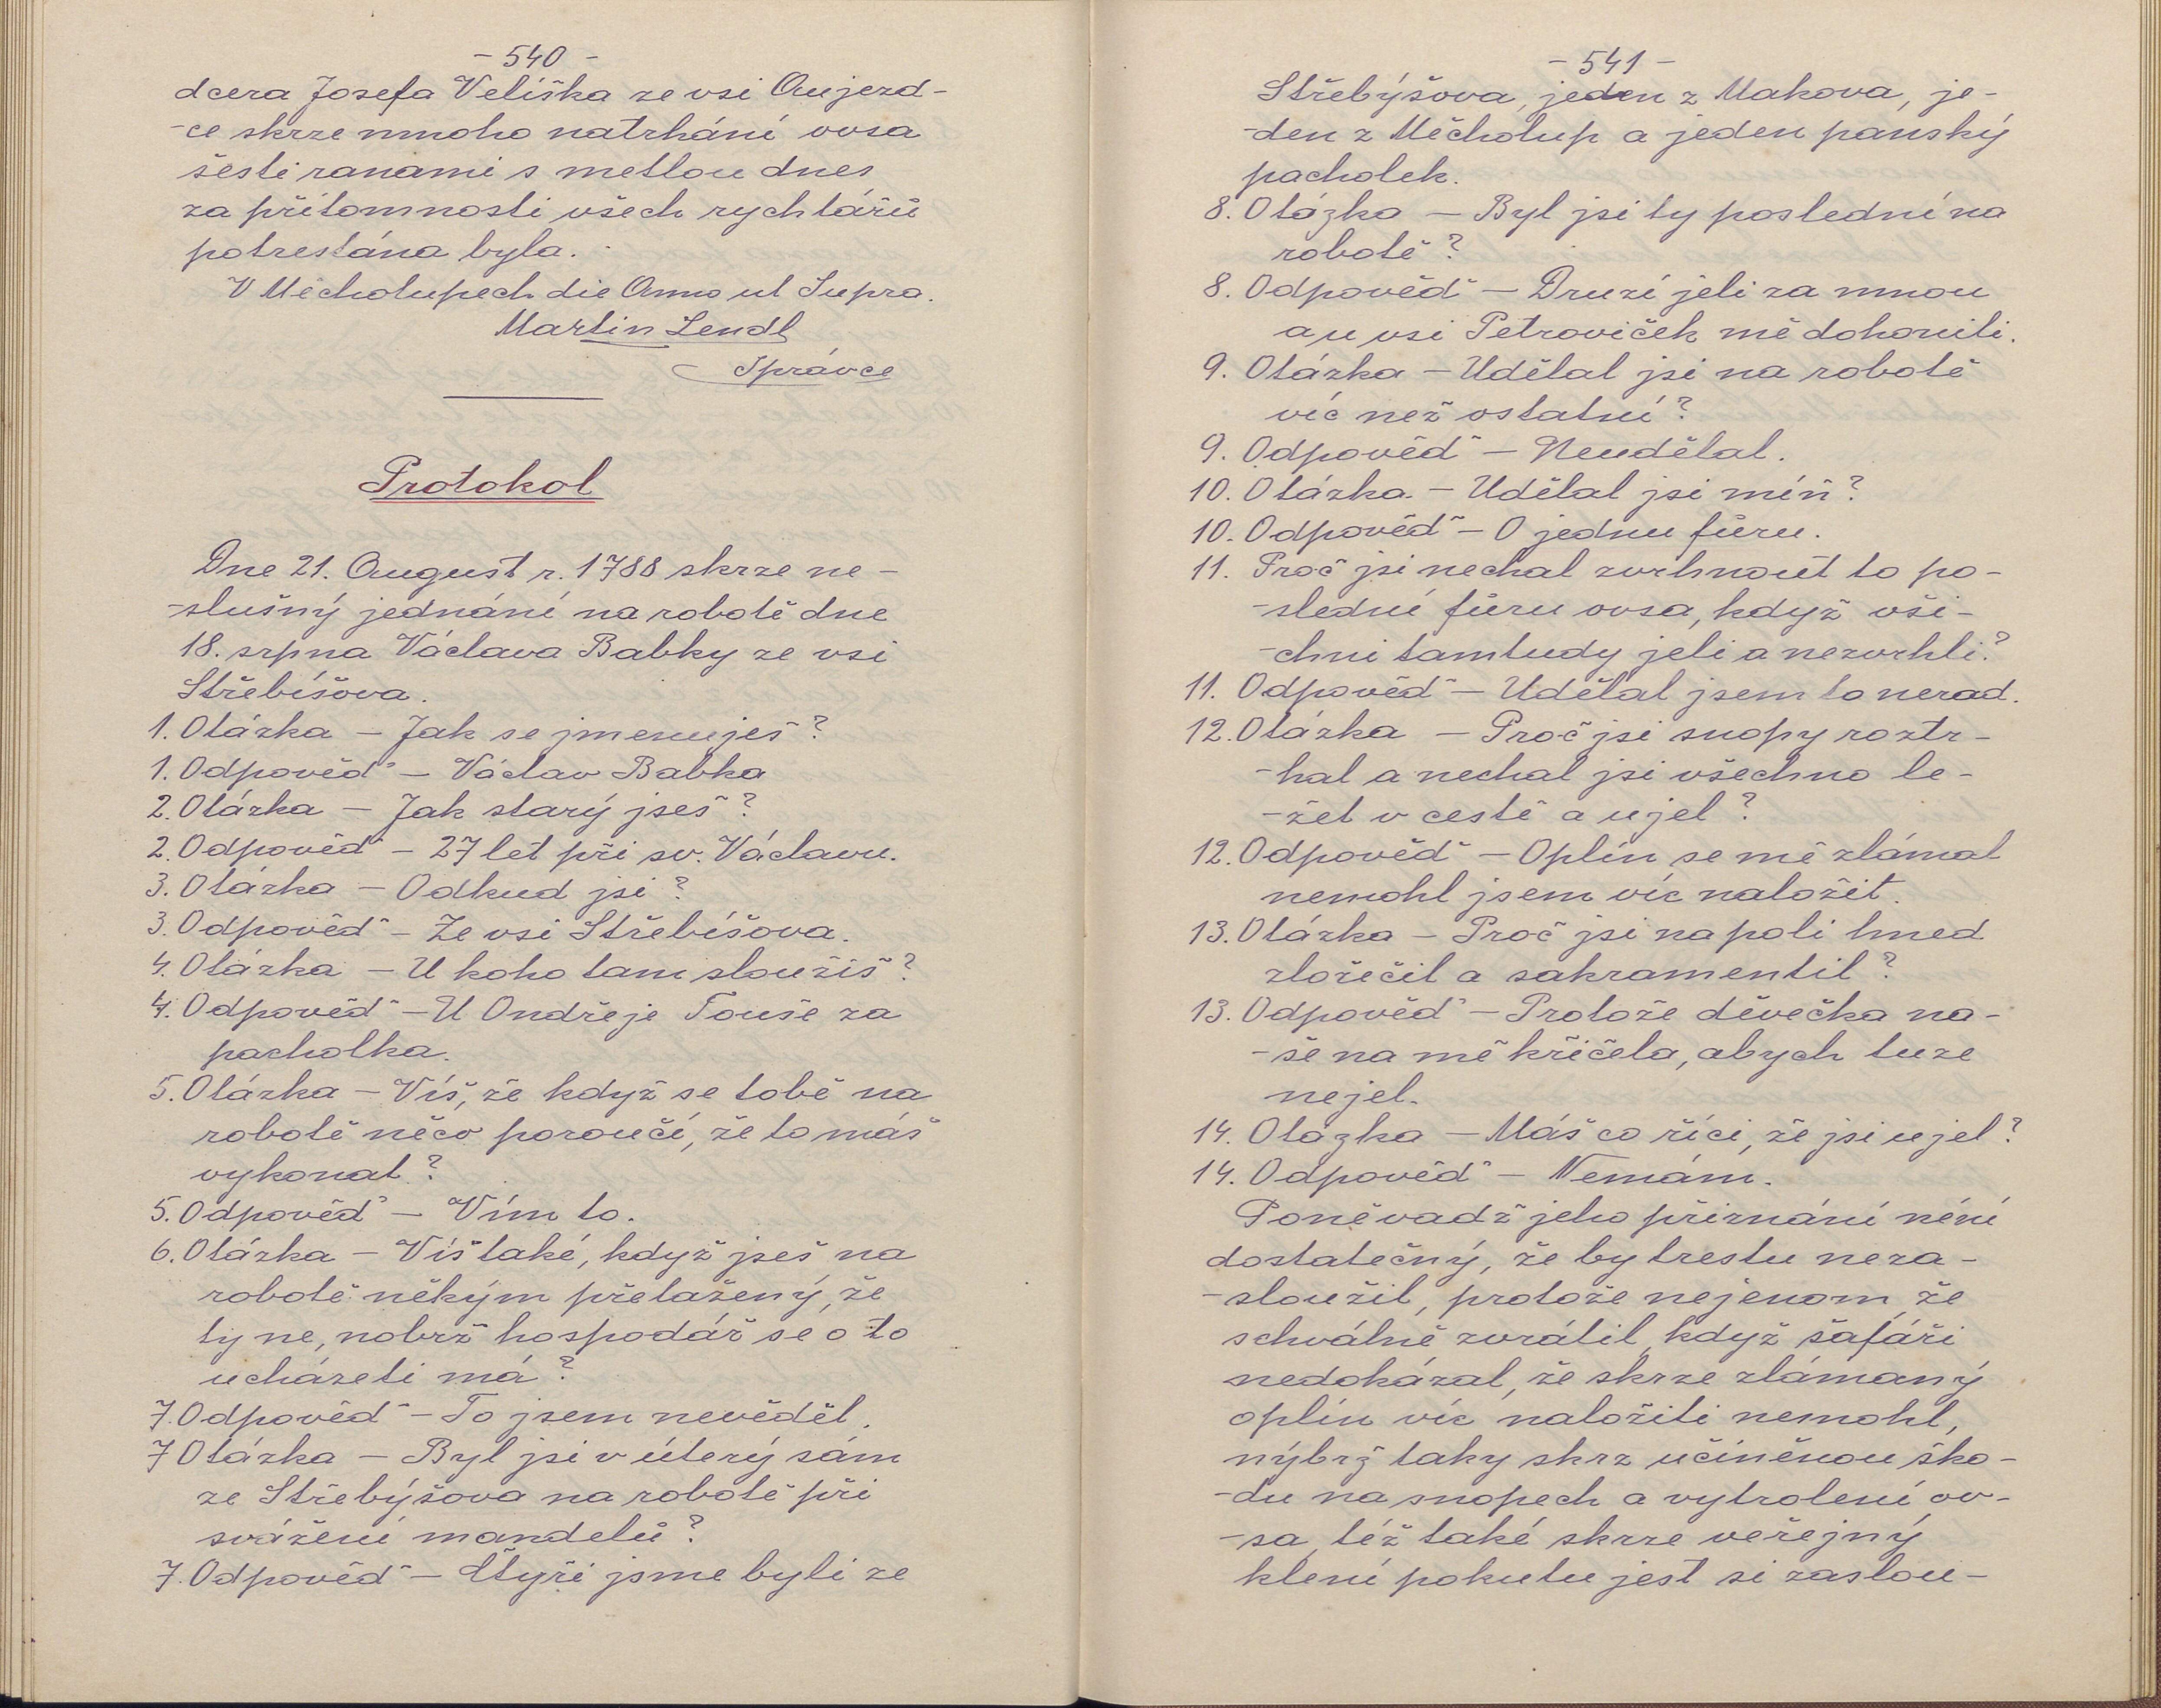 - 540 -
dcera Josefa Velíška ze vsi Aujezd-
-ce skrze mnoho natrhání ovsa
šesti ranami s metlou dnes
za přítomnosti všech rychtářů
potrestána byla.
V Měcholupech die Anno ut Supra.
Martin Lendl
Správce
Protokol
Dne 21. August r. 1788 skrze ne-
-slušný jednání na robotě dne
18. srpna Václava Babky ze vsi
Střebíšova.
1. Otázka — Jak se jmenuješ?
1. Odpověď — Václav Babka
2. Otázka — Jak starý jseš?
2. Odpověď — 27 let při sv. Václavu.
3. Otázka — Odkud jsi?
3. Odpověď — Ze vsi Střebíšova.
4. Otázka — U koho tam sloužíš?
4. Odpověď — U Ondřeje Touše za
pacholka.
5. Otázka — Víš, že když se tobě na
robotě něco poroučí, že to máš
vykonat?
5. Odpověď — Vím to.
6. Otázka — Víš také, když jseš na
robotě někým přetažený, že
ty ne, nobrž hospodář se o to
ucházeti má?
7. Odpověď — To jsem nevěděl.
7 Otázka — Byl jsi v úterý sám
ze Střebýšova na robotě při
svážení mandelů?
7. Odpověď — Čtyři jsme byli ze
- 541 -
Střebýšova, jeden z Makova, je-
-den z Měcholup a jeden panský
pacholek.
8. Otázka — Byl jsi ty poslední na
robotě?
8. Odpověď — Druzí jeli za mnou
a u vsi Petroviček mě dohonili.
9. Otázka — Udělal jsi na robotě
víc než ostatní?
9. Odpověď — Neudělal.
10. Otázka — Udělal jsi míň?
10. Odpověď — O jednu fůru.
11. Proč jsi nechal zvrhnout to po-
-slední fůru ovsa, když vši-
-chni tamtudy jeli a nezvrhli?
11. Odpověď — Udělal jsem to nerad.
12. Otázka — Proč jsi snopy roztr-
-hal a nechal jsi všechno le-
-žet v cestě a ujel?
12. Odpověď — Oplín se mě zlámal
nemohl jsem víc naložit.
13. Otázka — Proč jsi na poli hned
zlořečil a sakramentil?
13. Odpověď — Protože děvečka na-
-še na mě křičela, abych tuze
nejel.
14. Otázka — Máš co říci, že jsi ujel?
14. Odpověď — Nemám.
Poněvadž jeho přiznání není
dostatečný, že by trestu neza-
-sloužil, protože nejenom, že
schválně zvrátil, když šafáři
nedokázal, že skrze zlámaný
oplín víc naložiti nemohl,
nýbrž taky skrz učiněnou ško-
-du na snopech a vytrolení ov-
-sa, též také skrze veřejný
klení pokutu jest si zaslou-